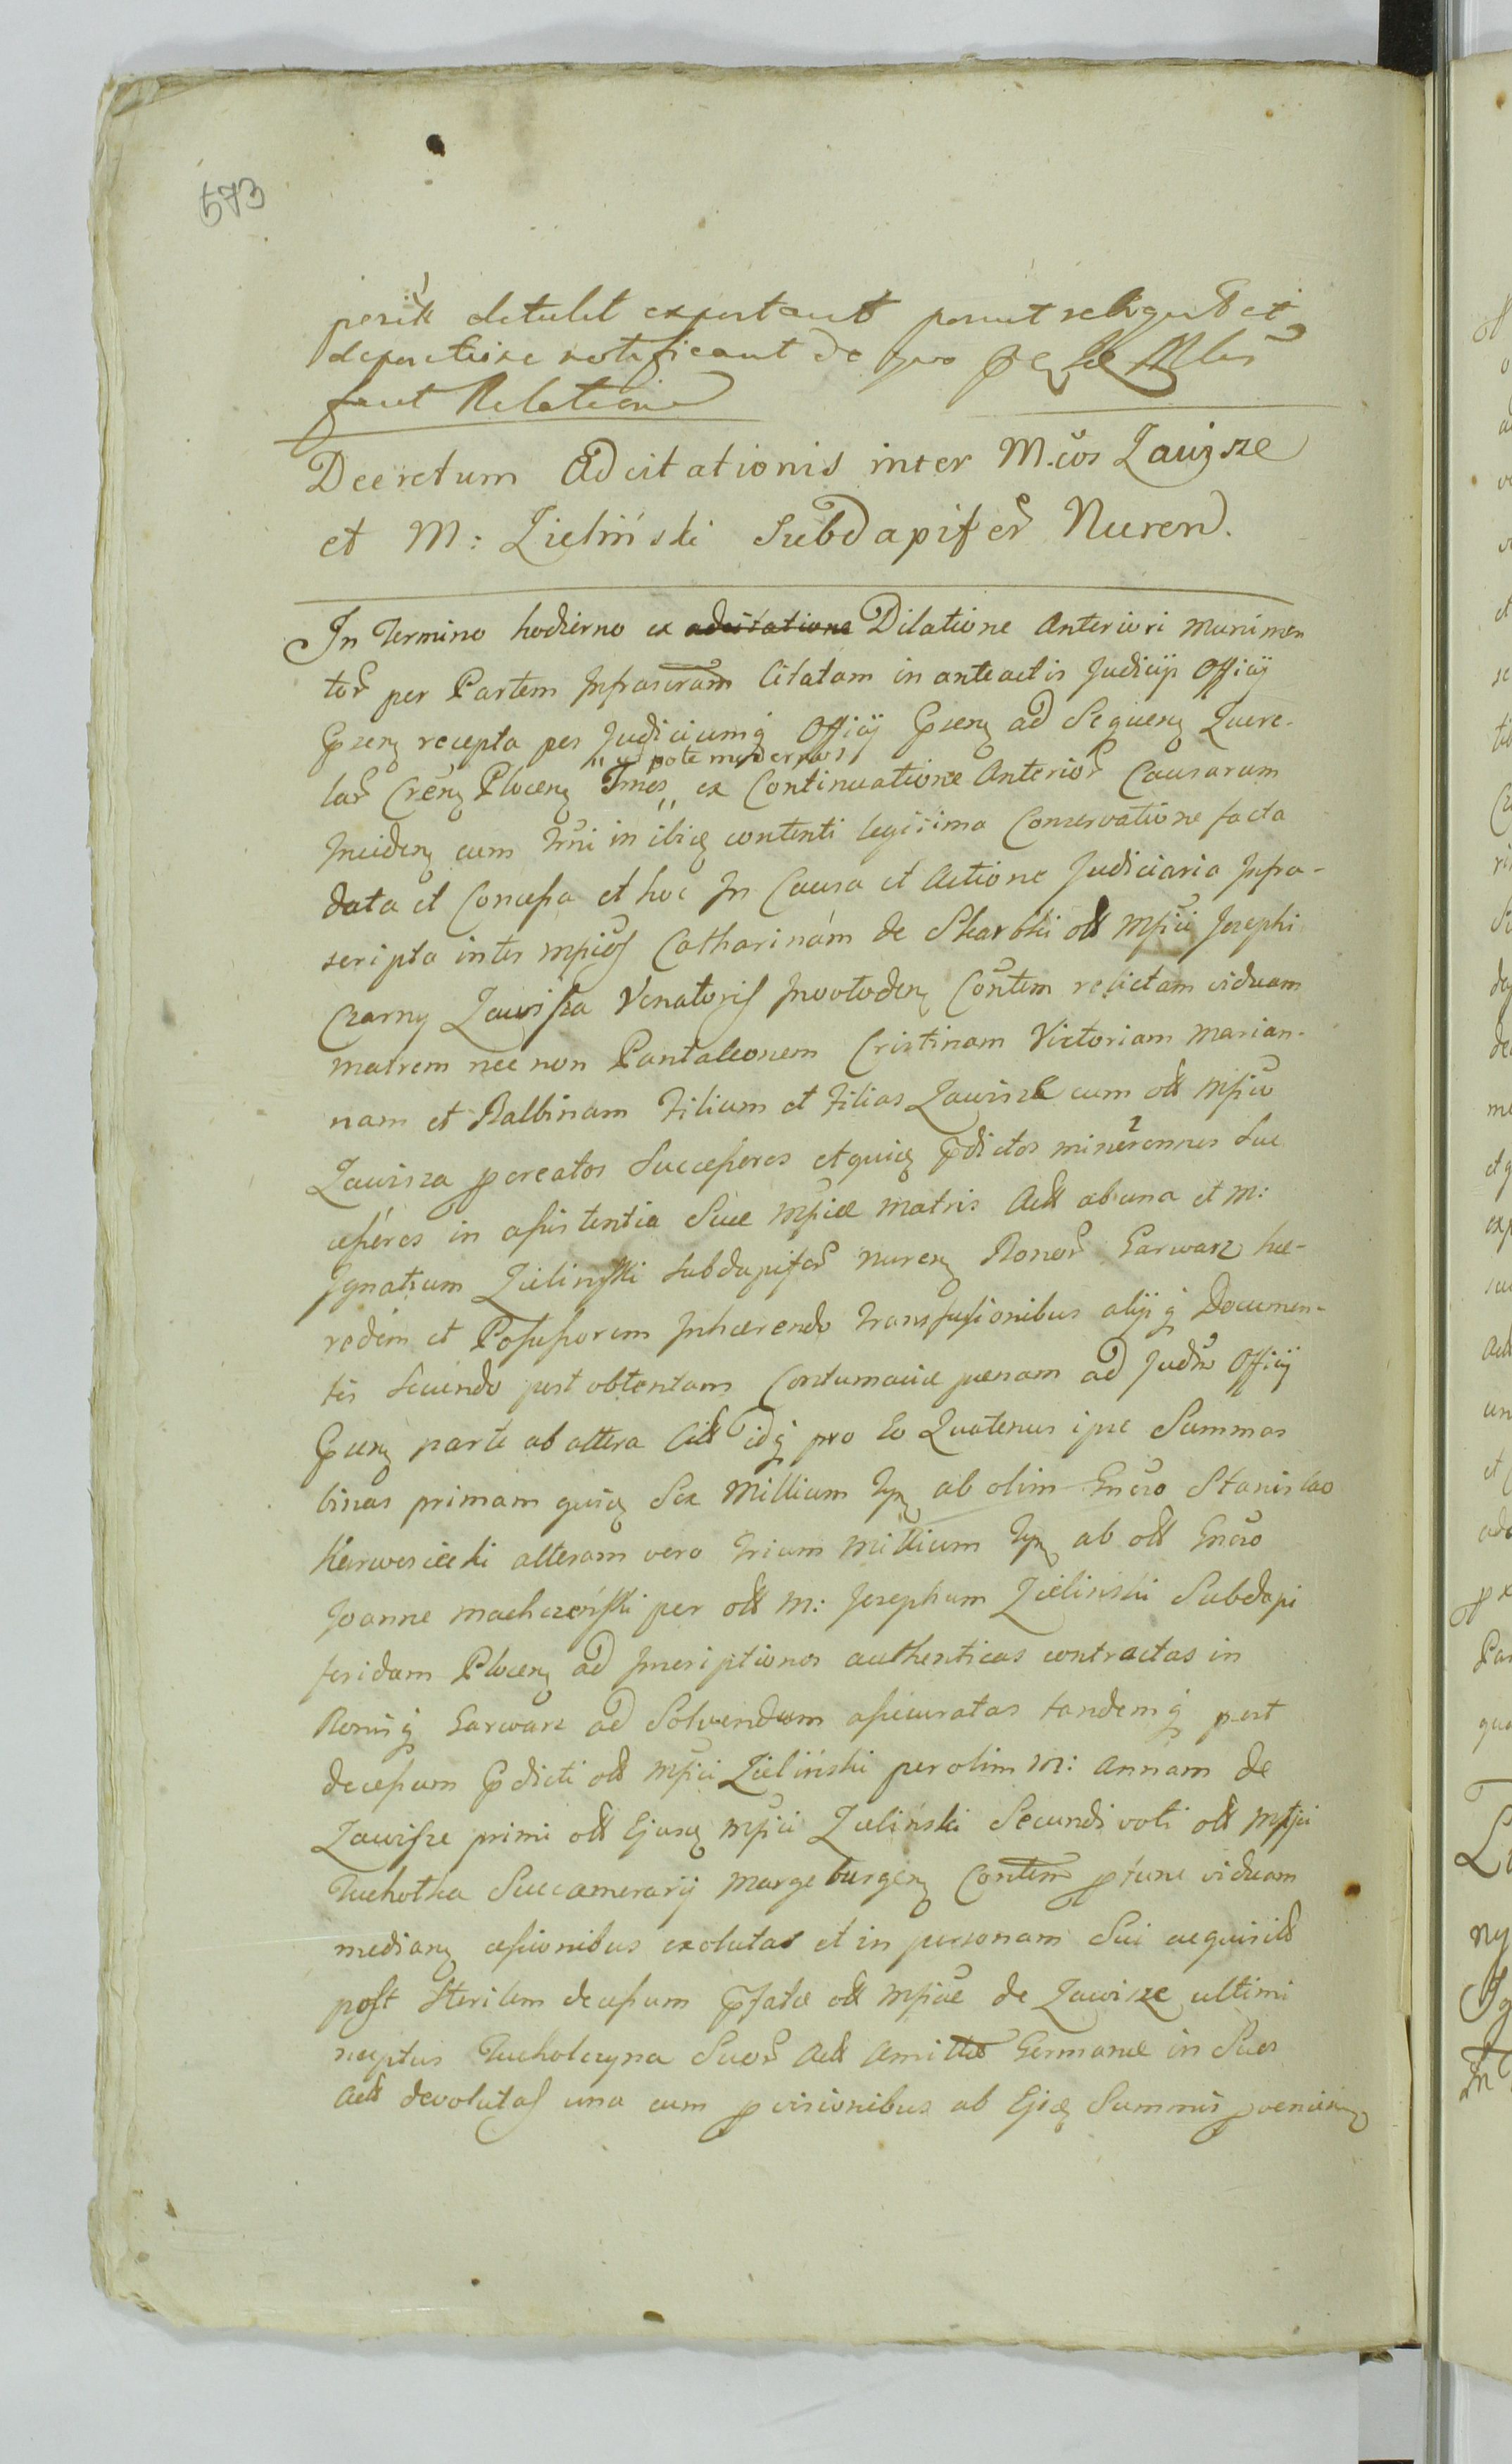 573
detulit
de quo
Relationē
Decretum Adcitationis inter M.cos Zawisze
et M: Zieliński Subdapiferū Nuren.
In Termino hodierno ex adcitatione Dilatione Anteriori munimen
tor̄ per Partem Infrascram̄ Citatam in anteactis Judicijs Officij
recepta per Judiciumq̨ Officij ad Sequenꝫ Quere-
lar̄ Crēnꝫ Plocenꝫ Tmōs ex Continuatione Anterior̄ Causarum
ut pote modernos
Incidenꝫ cum contenti legitima Conservatione facta
data et Concessa et hoc In Causa et Actione Judiciaria Infra-
scripta inter mficos Catharinam de Skarbki olt̄ mfici Josephi
Czarny Zawisza Venatoris Inowlodenꝫ Con̄tem relictam viduam
matrem nec non Pantaleonem Cristinam Victoriam Marian-
nam et Balbinam Filium et Filias Zawisze cum olt̄ mfico
Zawisza pcreatos Successores et quidꝫ pdictos minorennes Suc
cessores in assistentia Suae mficae matris Act̄ ab una et M:
Ignatium Zieliński Subdapifer̄ Nurenꝫ Bonor̄ Garwarz hae-
redem et Possessorem Inhaerendo transfusionibus alijsq̨ Documen-
tis Secundo post obtentam Contumaciae paenam ad Jud̄m Officij
parte ab altera Cit̄ idq̨ pro Eo Quatenus ipse Summas
binas primam quidꝫ Sex Millium ab olim Gn̄eso Stanislao
Karwosiecki alteram vero trium Millium ab olt̄ Gn̄eso
Joanne Machczeński per olt̄ M: Josephum Zieliński Subdapi
feridam Plocenꝫ ad Inscriptiones authenticas contractas in
Bonisq̨ Garwarz ad Solvendum assecuratas tandemq̨ post
decessum pdicti olt̄ mfici Zieliński per olim M: Annam de
Zawisze primi olt̄ Ejusdꝫ mfici Zieliński Secundi voti olt̄ mfici
Tuchołka Succamerarij Margeburgenꝫ Con̄tem ptunc viduam
medianꝫ cessionibus exolutas et in personam Sui aequisit̄
post Sterilem decessum pfatae olt̄ mficae de Zawisze ultimi
neptus Tucholczyna Suor̄ Act̄ Amittae Germanae in Suos
Act̄ devolutas una cum pvisionibus ab Ejsdꝫ Summis pvenien